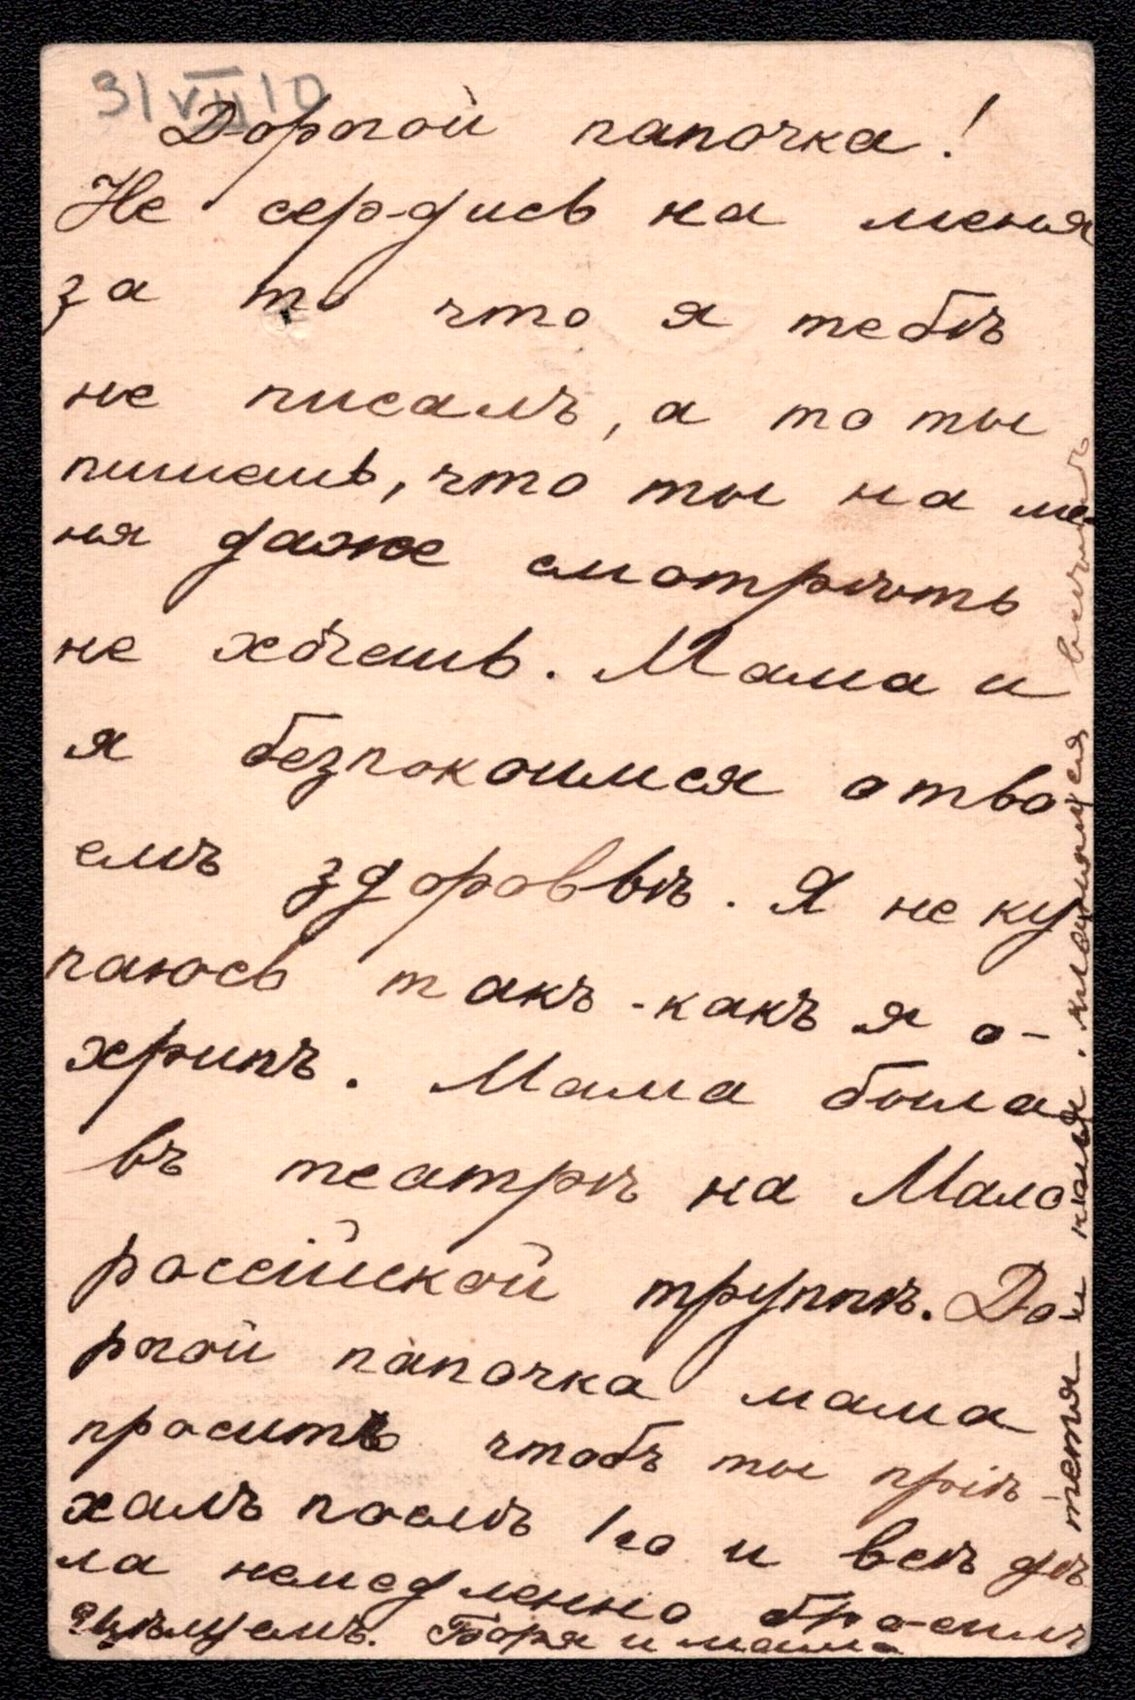 31 VII 10
Дорогой папочка!
Не сердись на меня
за то что я тебѣ
не писалъ, а то ты
пишешь, что ты на ме-
ня даже смотрѣть
не хочешь. Мама и
я безпокоимся о тво
емъ здоровьѣ. Я не ку
паюсь такъ-какъ я о-
хрипъ. Мама была
въ театрѣ на Мало
россійской труппѣ. До-
рогой папочка мама
проситъ чтобъ ты пріѣ-
халъ послѣ 1го и всѣ дѣ
ла немедленно бросилъ
Цѣлуемъ. Боря и мама
тетя и няня. кланяются всѣмъ